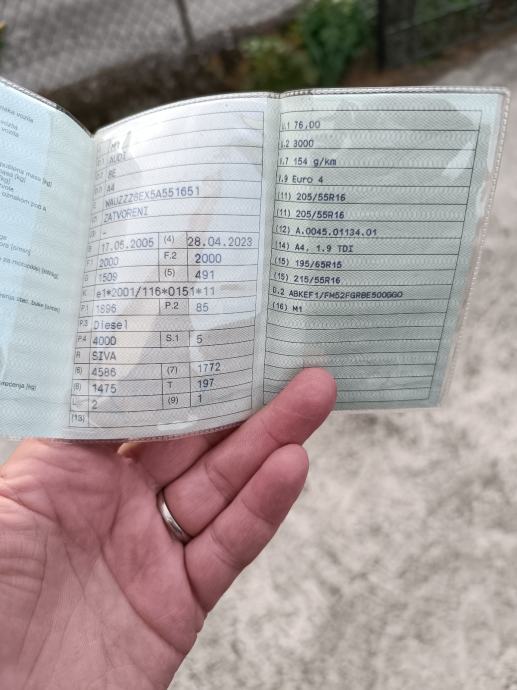 naka vozila
vozila
vozila
masa [kg]
[kg]
oznakom pod A
M1
AUDI
8E
A4
WAUZZZ8EX5A551651
ZATVORENI
-
17.05.2005 (4) 28.04.2023
2000 F.2 2000
G 1509 (5) 491
e1*2001/116*0151*11
P.1 1896 P.2 85
P.3 Diesel
P.4 4000 S.1 5
R SIVA
(6) 4586 (7) 1772
(8) 1475 T 197
L 2 (9) 1
(13)
U.1 76,00
U.2 3000
V.7 154 g/km
V.9 Euro 4
(11) 205/55R16
(11) 205/55R16
(12) A.0045.01134.01
(14) A4, 1.9 TDI
(15) 195/65R15
(15) 215/55R16
D.2 ABKEF1/FM52FGRBE500GGO
(16) M1